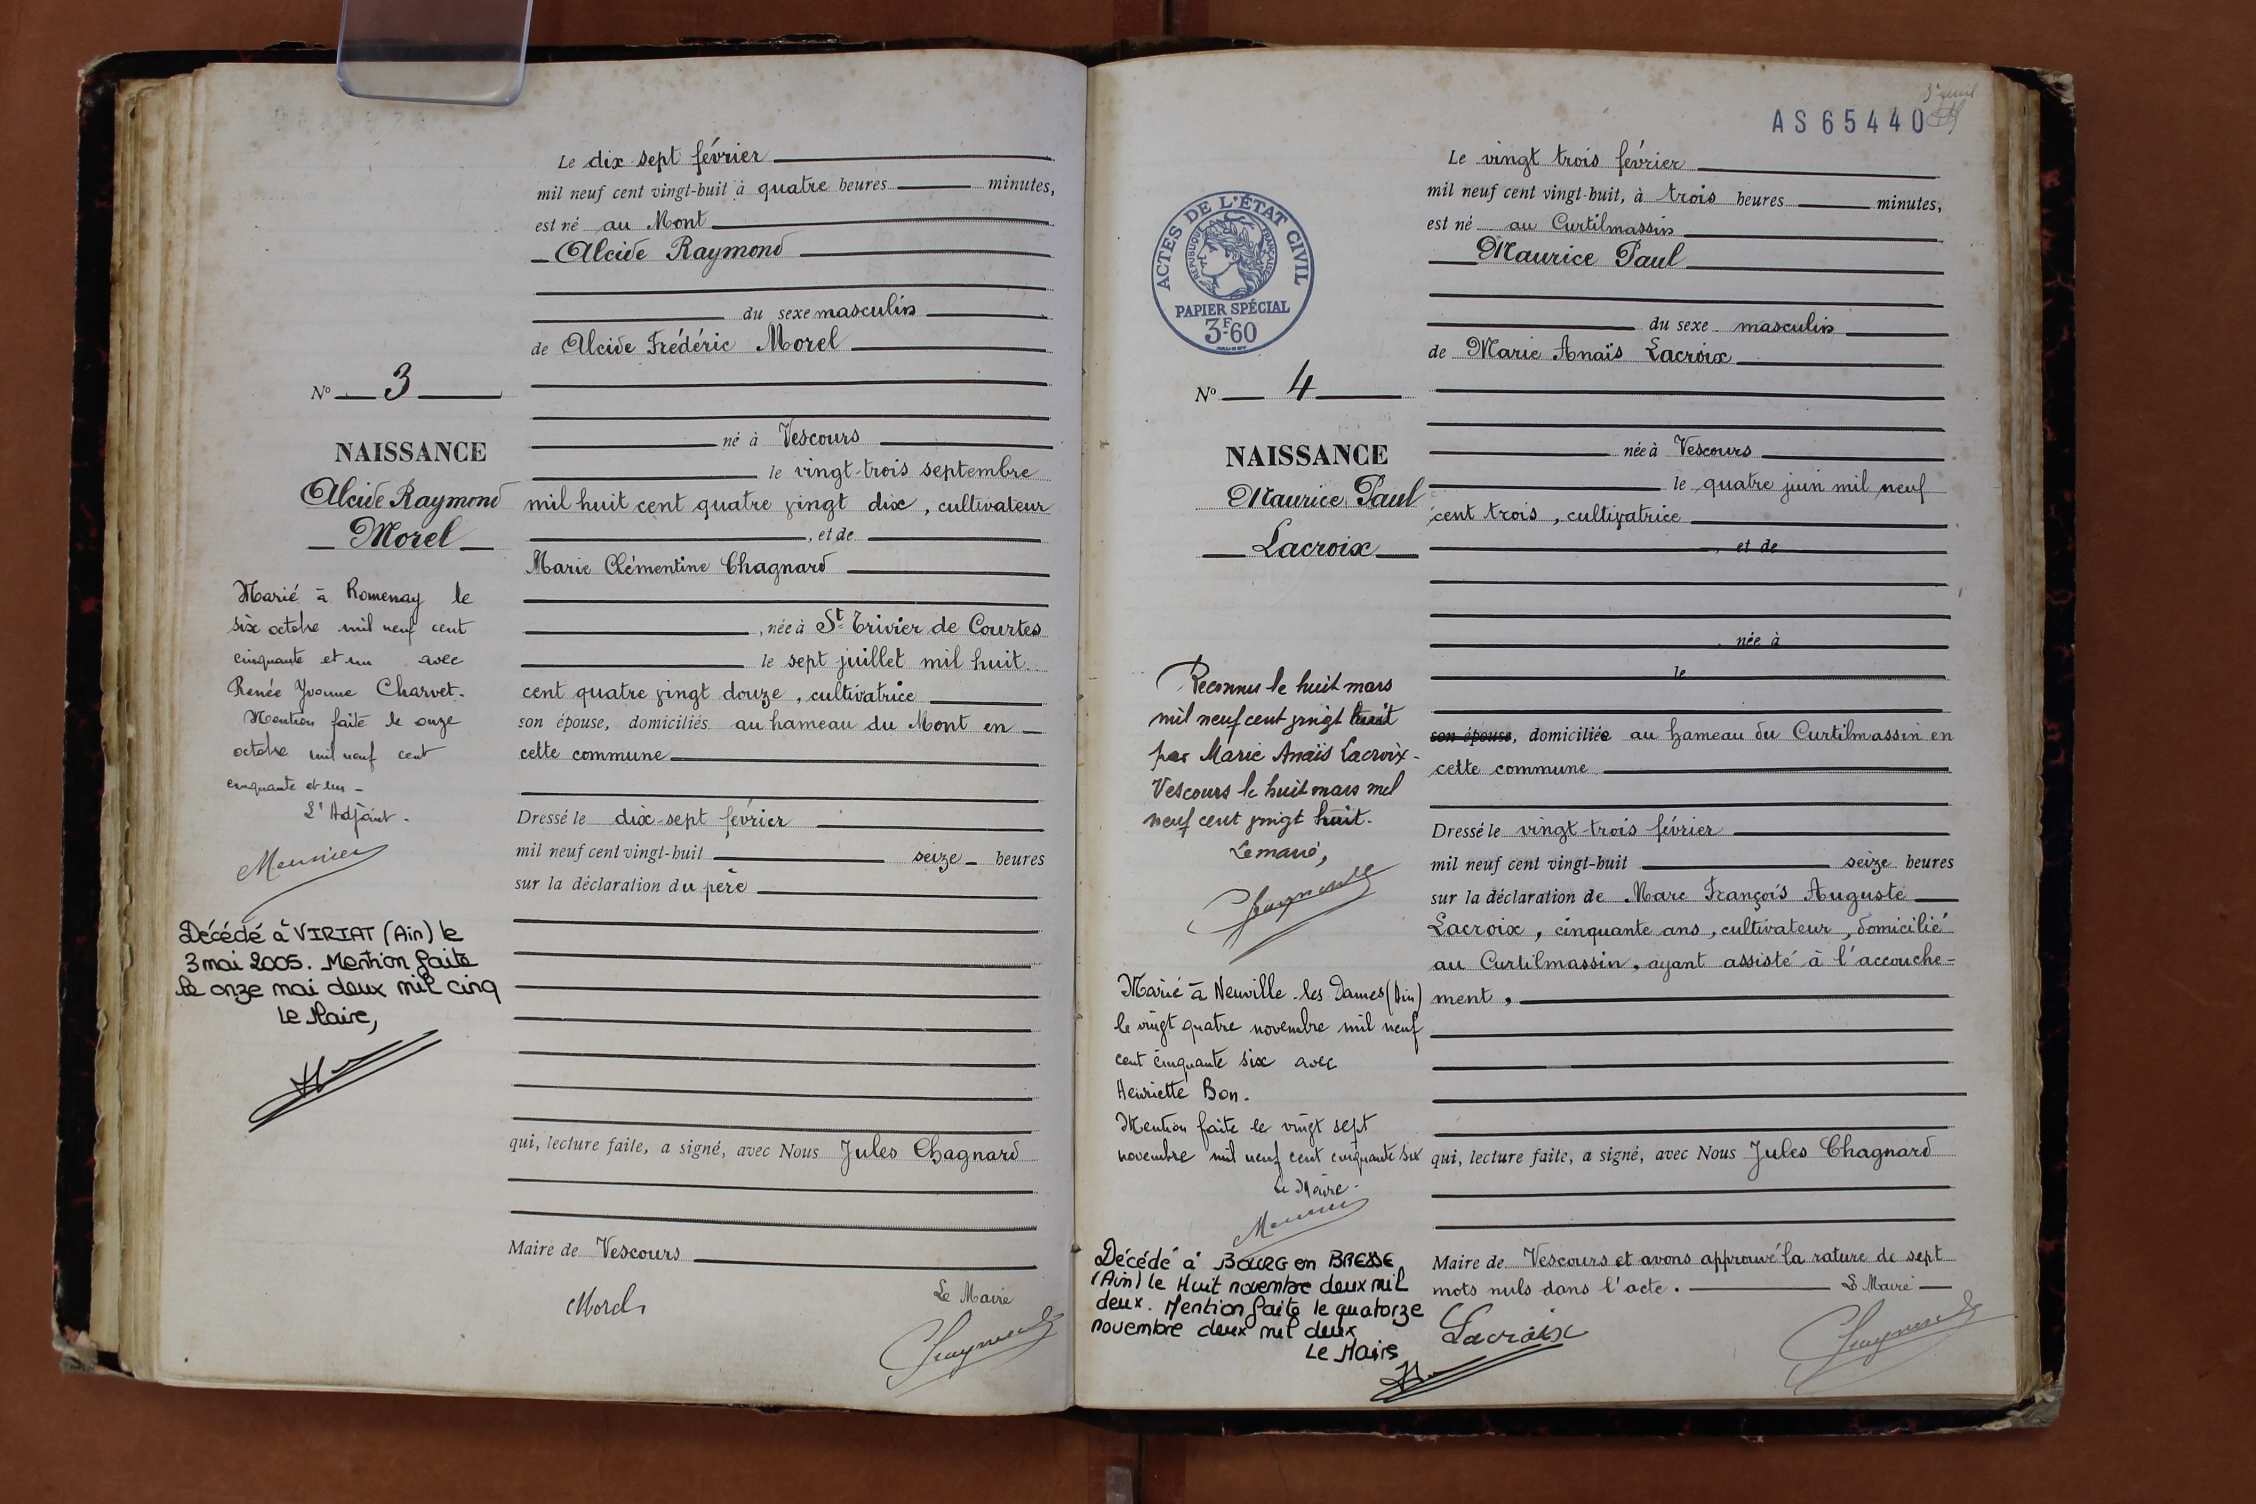 Le dix sept février
mil neuf cent vingt-huit à quatre heures minutes,
est né au Mont
Alcide Raymond
du sexe masculin
de Alcide Frédéric Morel
né à Vescours
le vingt-trois septembre
mil huit cent quatre vingt dix, cultivateur
, et de
Marie Clémentine Chagnard
, née à St Trivier de Courtes
le sept juillet mil huit
cent quatre vingt douze, cultivatrice
son épouse, domiciliés au hameau du Mont en
cette commune
Dressé le dix-sept février
mil neuf cent vingt-huit seize heures
sur la déclaration du père
qui, lecture faite, a signé, avec Nous Jules Chagnard
Maire de Vescours
Le Maire
Morel
N° 3
NAISSANCE
Alcide Raymond
Morel
Marié à Romenay le
six octobre mil neuf cent
cinquante et un avec
Renée Yvonne Charvet.
Mention faite le onze
octobre mil neuf cent
cinquante et un -
L'Adjoint.
Meunier
Décédé à VIRIAT (Ain) le
3 mai 2005. Mention faite
le onze mai deux mil cinq
Le Maire,
AS65440
ACTES DE L'ÉTAT CIVIL
RÉPUBLIQUE FRANÇAISE
PAPIER SPÉCIAL
3F.60
N° 4
NAISSANCE
Maurice Paul
Lacroix
Reconnu le huit mars
mil neuf cent vingt huit
par Marie Anaïs Lacroix -
Vescours le huit mars mil
neuf cent vingt huit.
Le maire,
Marié à Neuville-les-Dames (Ain)
le vingt quatre novembre mil neuf
cent cinquante six avec
Henriette Bon.
Mention faite le vingt sept
novembre mil neuf cent cinquante six
Le Maire.
Meunier
Décédé à BOURG en BRESSE
(Ain) le Huit novembre deux mil
deux. Mention faite le quatorze
novembre deux mil deux
Le Maire
Le vingt trois février
mil neuf cent vingt-huit, à trois heures minutes,
est né au Curtilmassin
Maurice Paul
du sexe masculin
de Marie Anaïs Lacroix
née à Vescours
le quatre juin mil neuf
cent trois, cultivatrice
, et de
, née à
le
son épouse, domiciliée au hameau du Curtilmassin en
cette commune
Dressé le vingt-trois février
mil neuf cent vingt-huit seize heures
sur la déclaration de Marc François Auguste
Lacroix, cinquante ans, cultivateur, domicilié
au Curtilmassin, ayant assisté à l'accouche-
ment,
qui, lecture faite, a signé, avec Nous Jules Chagnard
Maire de Vescours et avons approuvé la rature de sept
mots nuls dans l'acte. Le Maire
Lacroix